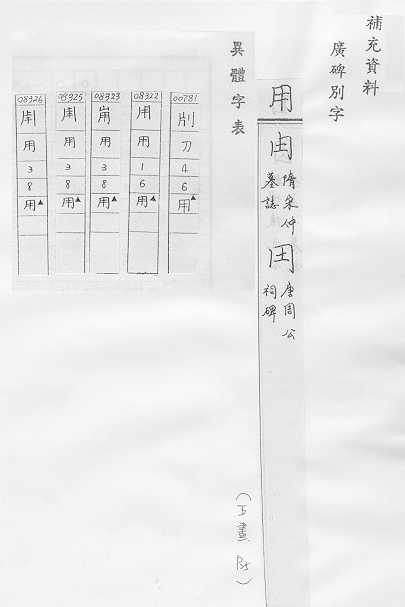 補充資料
廣碑別字
用
隋宋仲
墓誌
唐周公
祠碑
異體字表
00781
刀
4
6
用▲
08322
用
用
1
6
用▲
08323
用
3
8
用▲
08325
用
3
8
用▲
08326
用
3
8
用▲